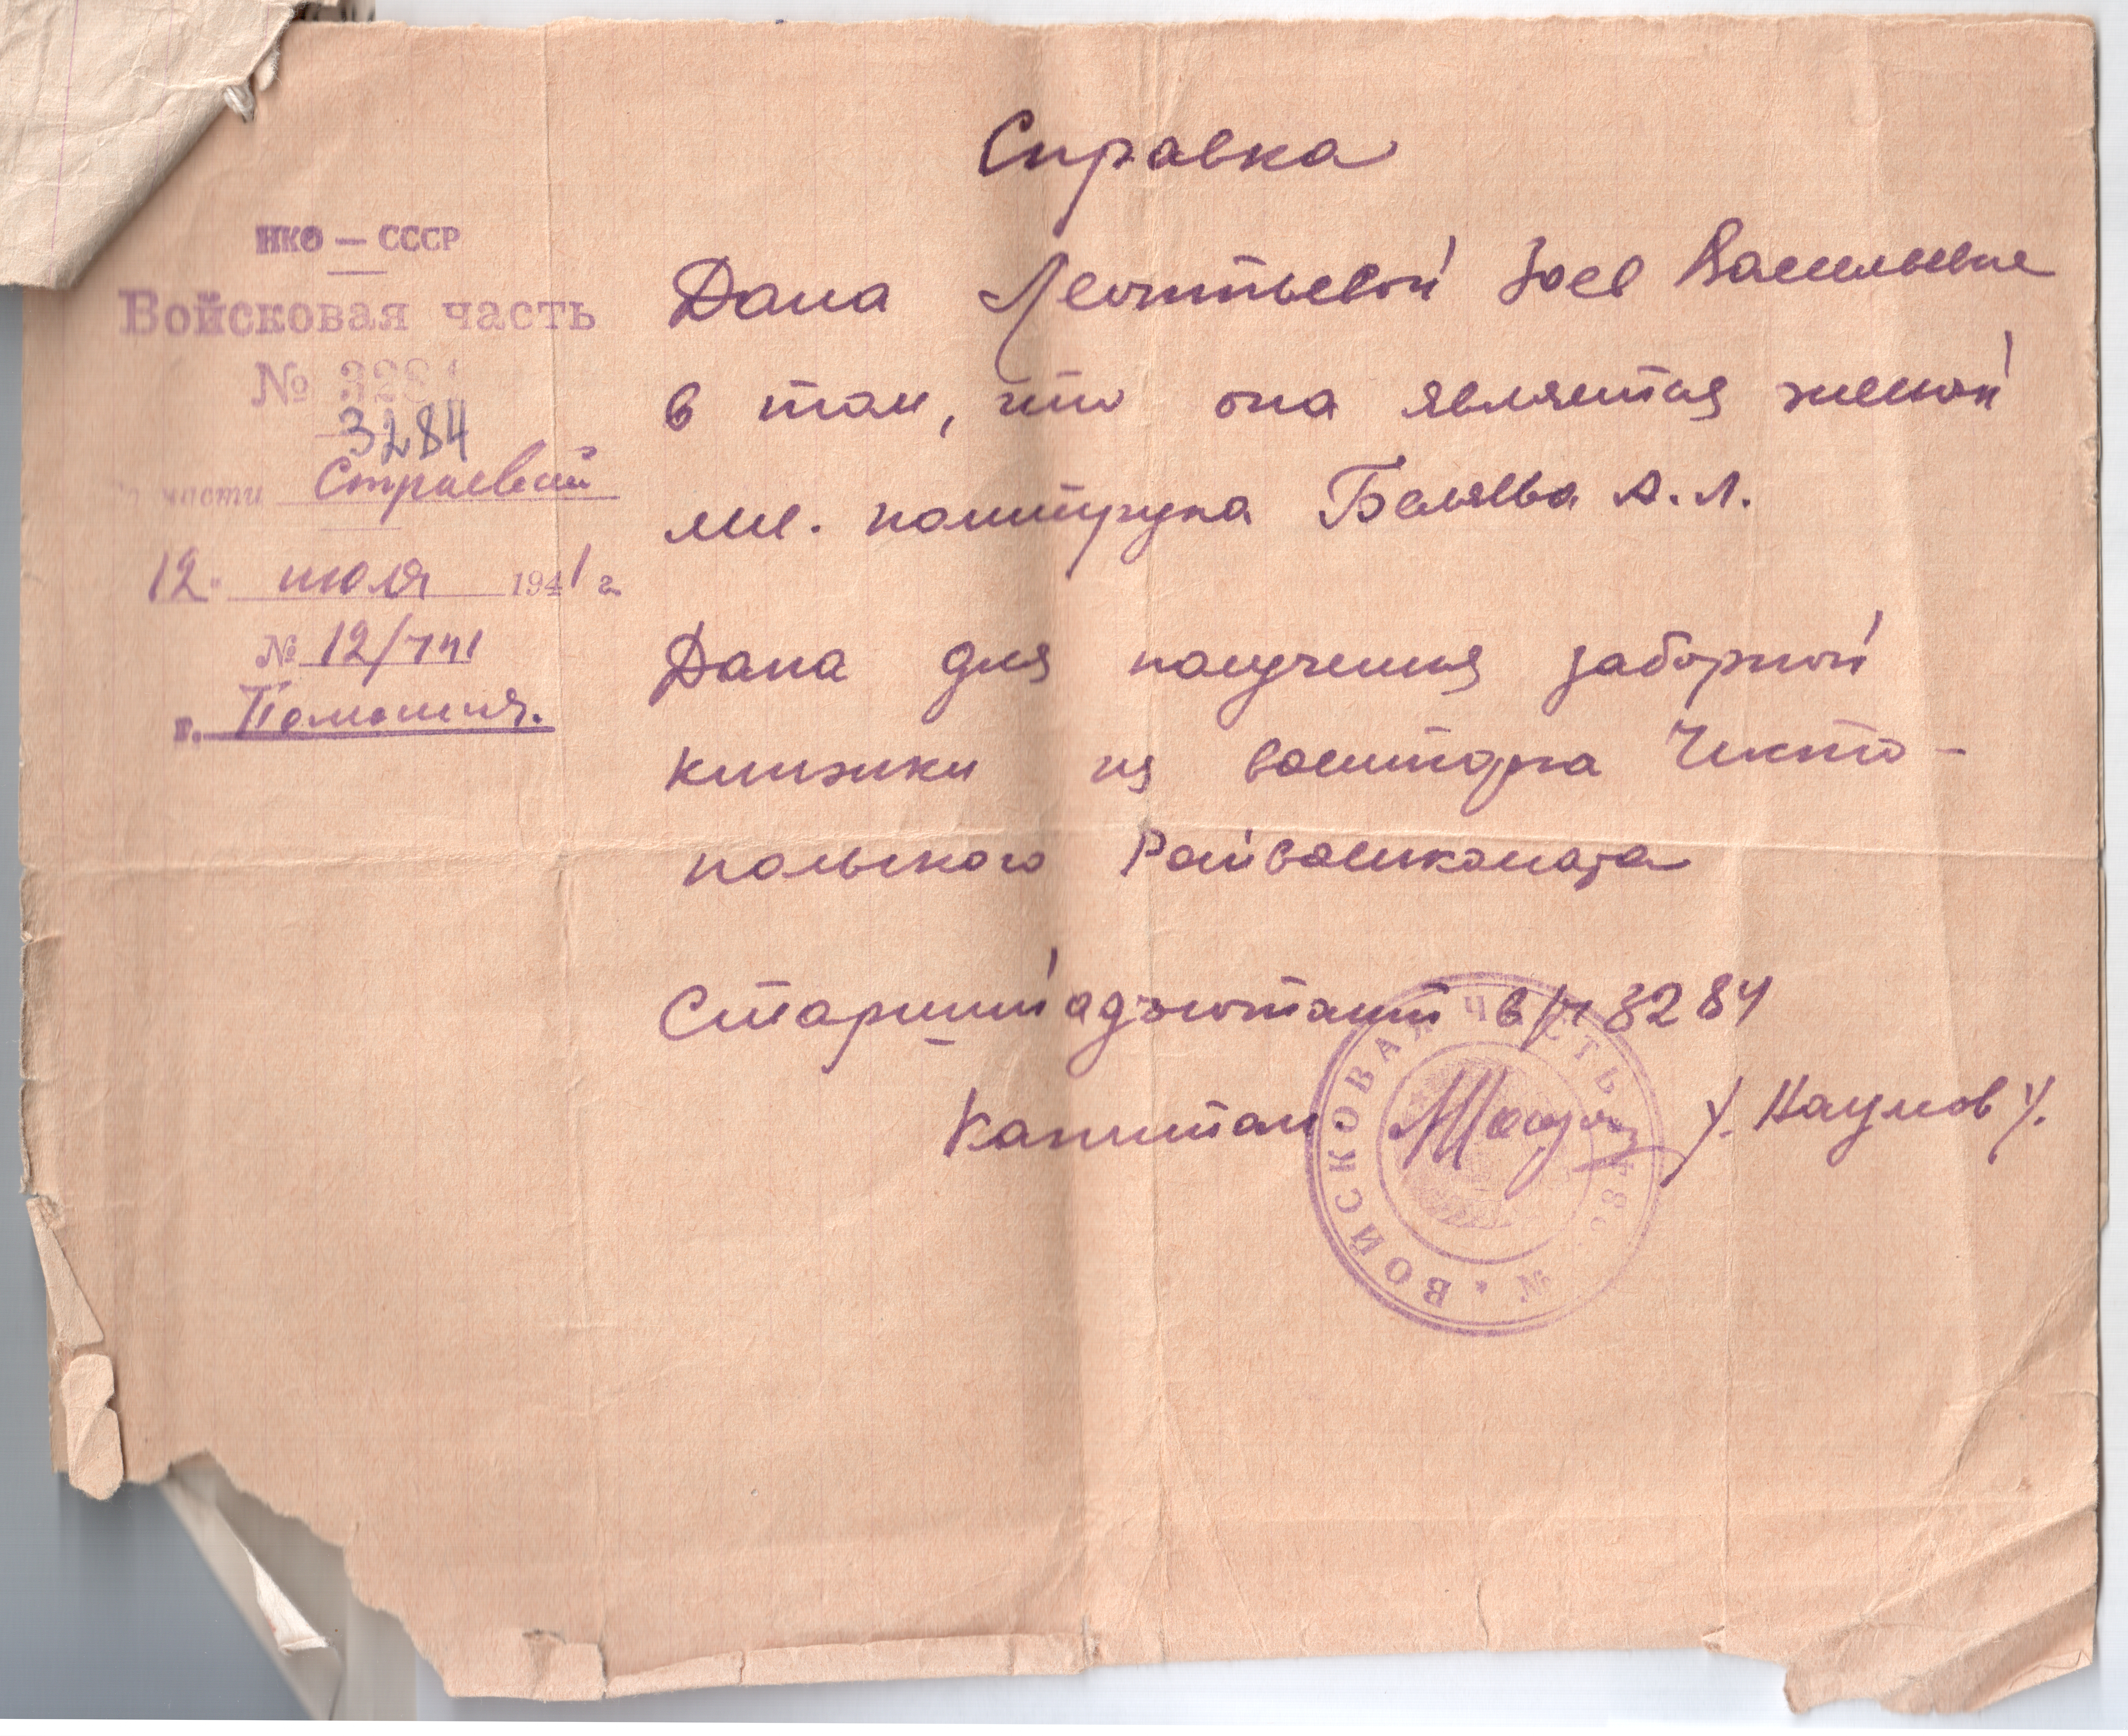 Справка
НКО — СССР
Войсковая часть
№ 3284
3284
части Строевой
12 июля 1941 г.
№ 12/
г.
Дана Леонтьевой Зое Васильевне
в том, что она является женой
мл. политрука Беляева А. Л.
Дана для получения заборной
книжки из военторга Чисто-
польского Райвоенкомата
Старший адъютант в/ч 3284
Капитан /. Наумов /.
ВОЙСКОВАЯ ЧАСТЬ №